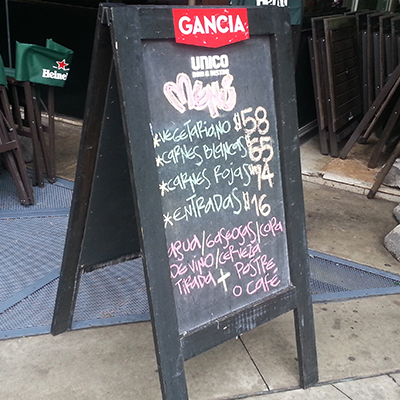 GANCIA
UNICO
Menú
*VEGETARIANO $58
*CARNES BLANCAS $65
*CARNES ROJAS $74
*ENTRADAS $16
AGUA/GASEOSAS/COPA
DE VINO/CERVEZA
TIRADA + POSTRE
O CAFÉ
Heine
Heine